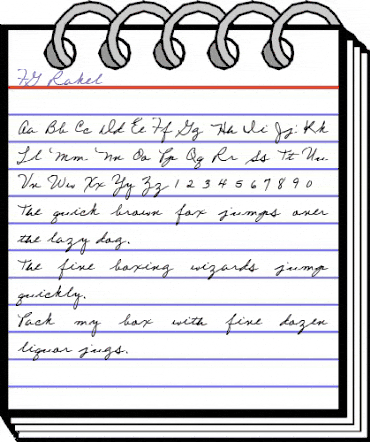 FG Rakel
Aa Bb Cc Dd Ee Ff Gg Hh Ii Jj Kk
Ll Mm Nn Oo Pp Qq Rr Ss Tt Uu
Vv Ww Xx Yy Zz 1 2 3 4 5 6 7 8 9 0
The quick brown fox jumps over
the lazy dog.
The fine boxing wizards jump
quickly.
Pack my box with fine dozen
liquor jugs.